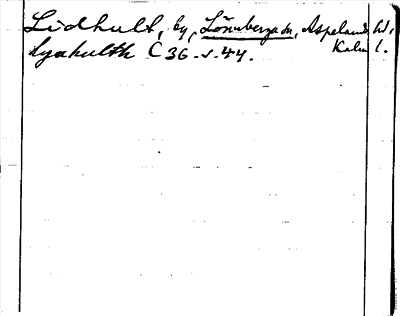 Lidhult, by, Lönneberga sn, Aspelands hd,
Kalm. l.
lyahulth C 36 s. 44.